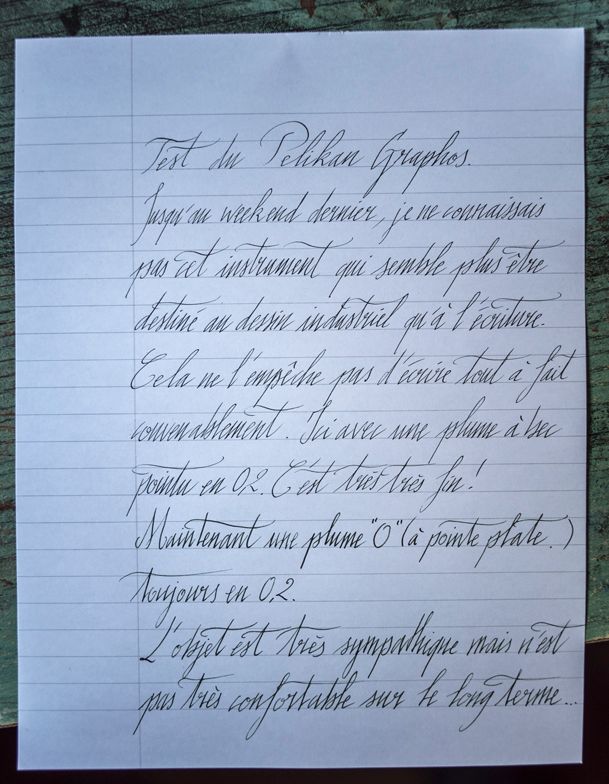 Test du Pelikan Graphos.
Jusqu'au weekend dernier, je ne connaissais
pas cet instrument qui semble plus être
destiné au dessin industriel qu'à l'écriture.
Cela ne l'empêche pas d'écrire tout à fait
convenablement. Ici avec une plume à bec
pointu en 0,2. C'est très très fin !
Maintenant une plume "O" (à pointe plate.)
toujours en 0,2.
L'objet est très sympathique mais n'est
pas très confortable sur le long terme...